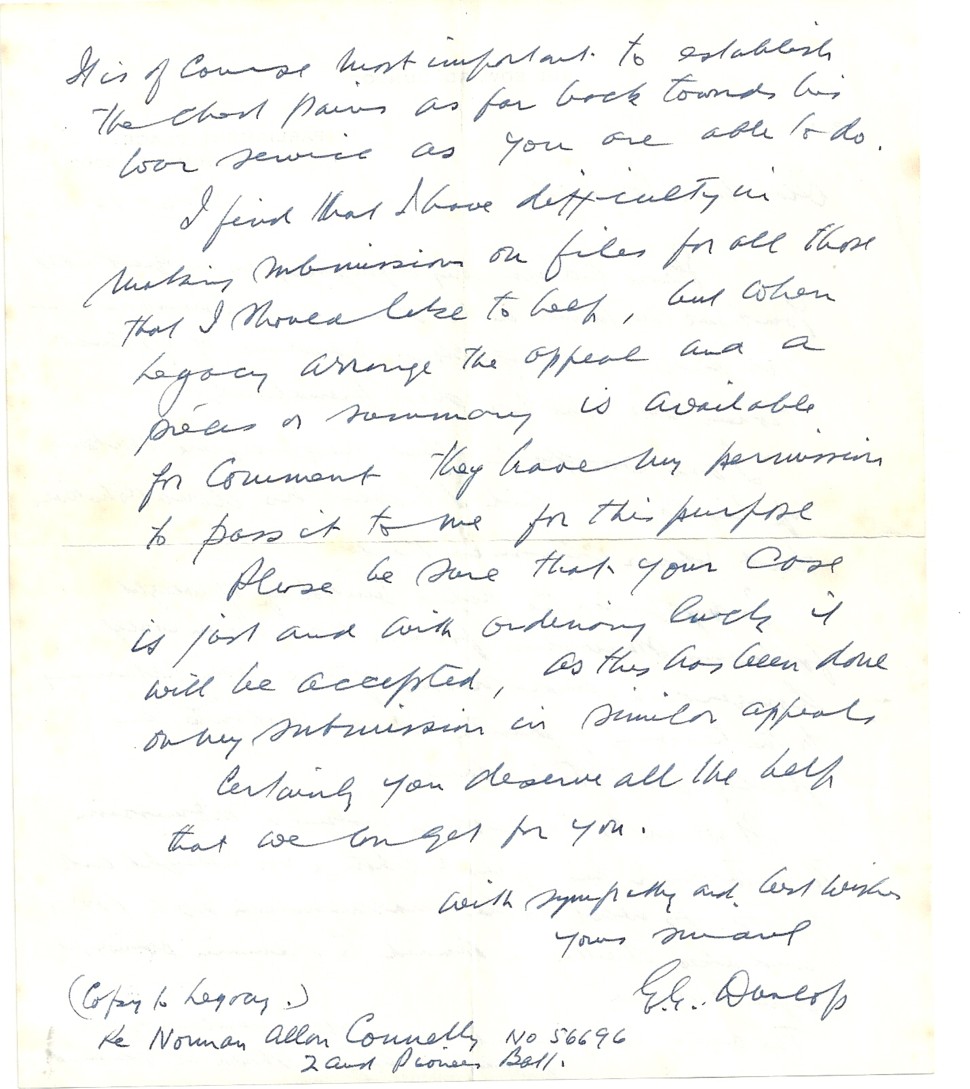 It is of course most important to establish
the chest pains as far back towards his
war service as you are able to do.
I find that I have difficulty in
making submissions on files for all those
that I should like to help, but when
Legacy arrange the appeal and a
précis or summary is available
for comment they have my permission
to pass it to me for this purpose
Please be sure that your case
is just and with ordinary luck it
will be accepted, as this has been done
on my submission in similar appeals
Certainly you deserve all the help
that we can get for you.
With sympathy and best wishes
Yours
E.E. Dunlop
(Copy to Legacy.)
Re Norman Allan Connelly No 56696
2nd Pioneer Batt.